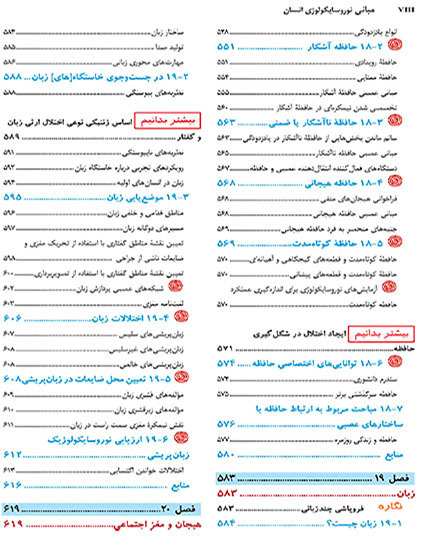 VIII مبانی نوروسایکولوژی انسان
انواع یادزدودگی ۵۴۸
۱۸-۲ حافظه آشکار ۵۵۱
حافظهٔ رویدادی ۵۵۱
حافظهٔ معنایی ۵۵۴
مبانی عصبی حافظهٔ آشکار ۵۵۵
تخصصی شدن نیمکره‌ای در حافظهٔ آشکار ۵۶۰
۱۸-۳ حافظه ناآشکار یا ضمنی ۵۶۳
سالم ماندن بخش‌هایی از حافظهٔ ناآشکار در یادزدودگی ۵۶۳
مبانی عصبی حافظه ناآشکار ۵۶۵
دستگاه‌های فعال‌کننده انتقال‌دهنده عصبی و حافظه ۵۶۷
۱۸-۴ حافظه هیجانی ۵۶۸
فراخوانی هیجان‌های منفی ۵۶۸
مبانی عصبی حافظه هیجانی ۵۶۸
جنبه‌های منحصر به فرد حافظه هیجانی ۵۶۹
۱۸-۵ حافظه کوتاه‌مدت ۵۶۹
حافظهٔ کوتاه‌مدت و قطعه‌های گیجگاهی و آهیانه‌ای ۵۷۰
حافظه کوتاه‌مدت و قطعه‌های پیشانی ۵۷۰
آزمایش‌های نوروسایکولوژی برای اندازه‌گیری عملکرد
حافظه کوتاه‌مدت ۵۷۰
بیشتر بدانیم ایجاد اختلال در شکل‌گیری
حافظه ۵۷۱
۱۸-۶ توانایی‌های اختصاصی حافظه ۵۷۴
سندرم دانشوری ۵۷۴
حافظه سرگذشتی برتر ۵۷۵
۱۸-۷ مباحث مربوط به ارتباط حافظه با
ساختارهای عصبی ۵۷۶
حافظه و زندگی روزمره ۵۷۷
منابع ۵۸۰
فصل ۱۹ ۵۸۳
زبان ۵۸۳
نگاره فروپاشی چندزبانی ۵۸۳
۱۹-۱ زبان چیست؟ ۵۸۴
ساختار زبان ۵۸۴
تولید صدا ۵۸۵
مهارت‌های محوری زبانی ۵۸۶
۱۹-۲ در جست‌وجوی خاستگاه[های] زبان ۵۸۸
نظریه‌های پیوستگی ۵۸۸
بیشتر بدانیم اساس ژنتیکی نوعی اختلال ارثی زبان
و گفتار ۵۸۹
نظریه‌های ناپیوستگی ۵۹۱
رویکردهای تجربی درباره خاستگاه زبان ۵۹۲
زبان در انسان‌های اولیه ۵۹۴
۱۹-۳ موضع‌یابی زبان ۵۹۵
مناطق قدامی و خلفی زبان ۵۹۶
مسیرهای دوگانه زبان ۵۹۷
تعیین نقشهٔ مناطق گفتاری با استفاده از تحریک مغزی و
ضایعات ناشی از جراحی ۵۹۸
تعیین نقشهٔ مناطق گفتاری با استفاده از تصویربرداری ۶۰۰
شبکه‌های عصبی پردازش زبان ۶۰۲
لغت‌نامه مغزی ۶۰۳
۱۹-۴ اختلالات زبان ۶۰۶
زبان‌پریشی‌های سلیس ۶۰۷
زبان‌پریشی‌های غیرسلیس ۶۰۸
زبان‌پریشی‌های خالص ۶۰۸
۱۹-۵ تعیین محل ضایعات در زبان‌پریشی ۶۰۸
مؤلفه‌های قشری زبان ۶۰۹
مؤلفه‌های زیرقشری زبان ۶۱۰
نقش نیمکرهٔ مغزی سمت راست در زبان ۶۱۱
۱۹-۶ ارزیابی نوروسایکولوژیک
زبان‌پریشی ۶۱۲
اختلالات خواندن اکتسابی ۶۱۳
منابع ۶۱۶
فصل ۲۰ ۶۱۹
هیجان و مغز اجتماعی ۶۱۹